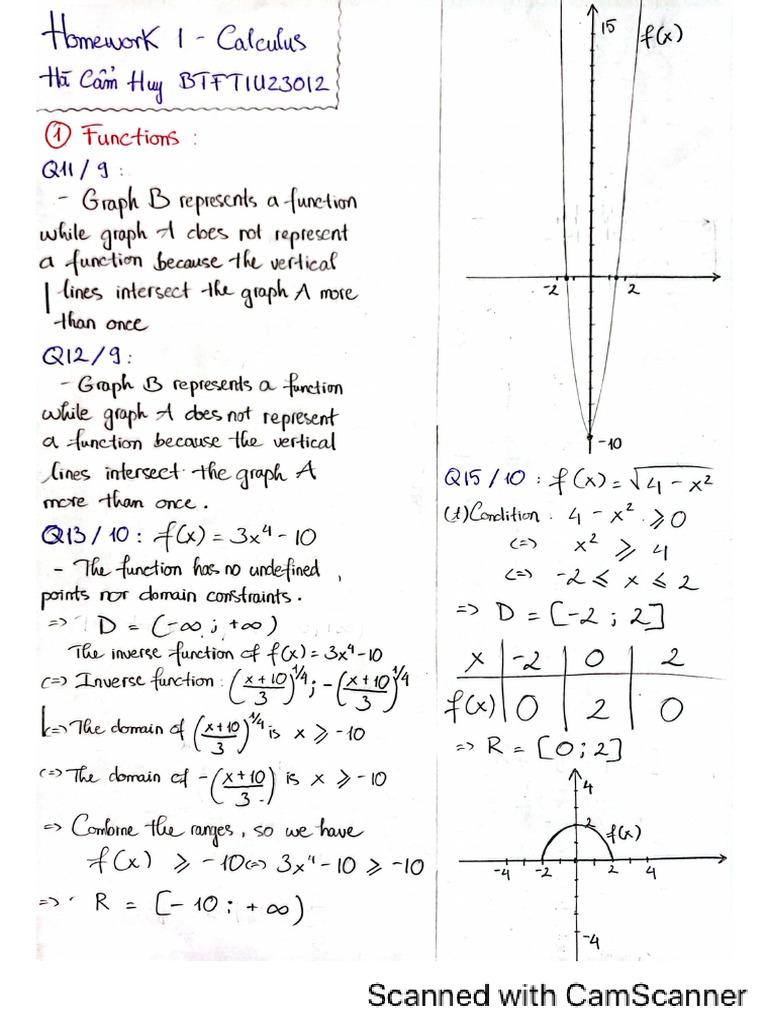 Homework 1 - Calculus
Hà Cẩm Huy BTFT1U23012
① Functions :
Q11/9 :
- Graph B represents a function
while graph A does not represent
a function because the vertical
lines intersect the graph A more
than once
Q12/9 :
- Graph B represents a function
while graph A does not represent
a function because the vertical
lines intersect the graph A
more than once .
Q13/10 : f(x) = 3x⁴ - 10
- The function has no undefined ,
points nor domain constraints .
=> D = (-∞ ; +∞)
The inverse function of f(x) = 3x⁴ - 10
<=> Inverse function : ((x+10)/3)^1/4 ; -((x+10)/3)^1/4
<=> The domain of ((x+10)/3)^1/4 is x ≥ -10
<=> The domain of -((x+10)/3) is x ≥ -10
=> Combine the ranges, so we have
f(x) ≥ -10 <=> 3x⁴ - 10 ≥ -10
=> R = [-10 ; +∞)
15 f(x)
-2 2
-10
Q15/10 : f(x) = √(4 - x²)
Condition : 4 - x² ≥ 0
<=> x² ≥ 4
<=> -2 ≤ x ≤ 2
=> D = [-2 ; 2]
x | -2 | 0 | 2
f(x) | 0 | 2 | 0
=> R = [0 ; 2]
4
2 f(x)
-4 -2 2 4
-4
Scanned with CamScanner